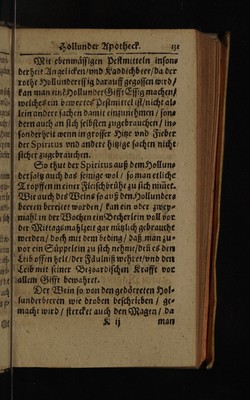 Hollunder Apotheck. 131
Mit ebenmässigen Pestmitteln inson
derheit Angelicken/ und Kaddichbeer/ da der
rothe Hollunderessig darauff gegossen wird/
kan man ein Hollunder Gifft Essig machen/
welches ein bewertes Pestmittel ist/ nicht al-
lein andere sachen damit einzunehmen/ son
dern auch an sich selbsten zugebrauchen/ in-
sonderheit wenn in grosser Hitze und Fieber
der Spiritus und andere hitzige sachen nicht
sicher zugebrauchen.
So thut der Spiritus auß dem Hollun-
dersaltz auch das seinige wol/ so man etliche
Tropffen in einer Fleischbrühe zu sich nimt.
Wie auch des Weins so auß den Hollundera
beeren bereitet worden/ kan ein oder zwey-
mahl in der Wochen ein Becherlein voll vor
der Mittagsmahlzeit gar nützlich gebraucht
werden/ doch mit dem beding/ daß man zu-
vor ein Süpplein zu sich nehme/ den es den
Leib offen helt/ der Fäulniß wehret/ und den
Leib mit seiner Bezoardischen Krafft vor
allem Gifft bewahret.
Der Wein so von den gedörreten Hol-
lunderbeeren wie droben beschrieben/ ge-
macht wird/ stercket auch den Magen/ da
K ij man